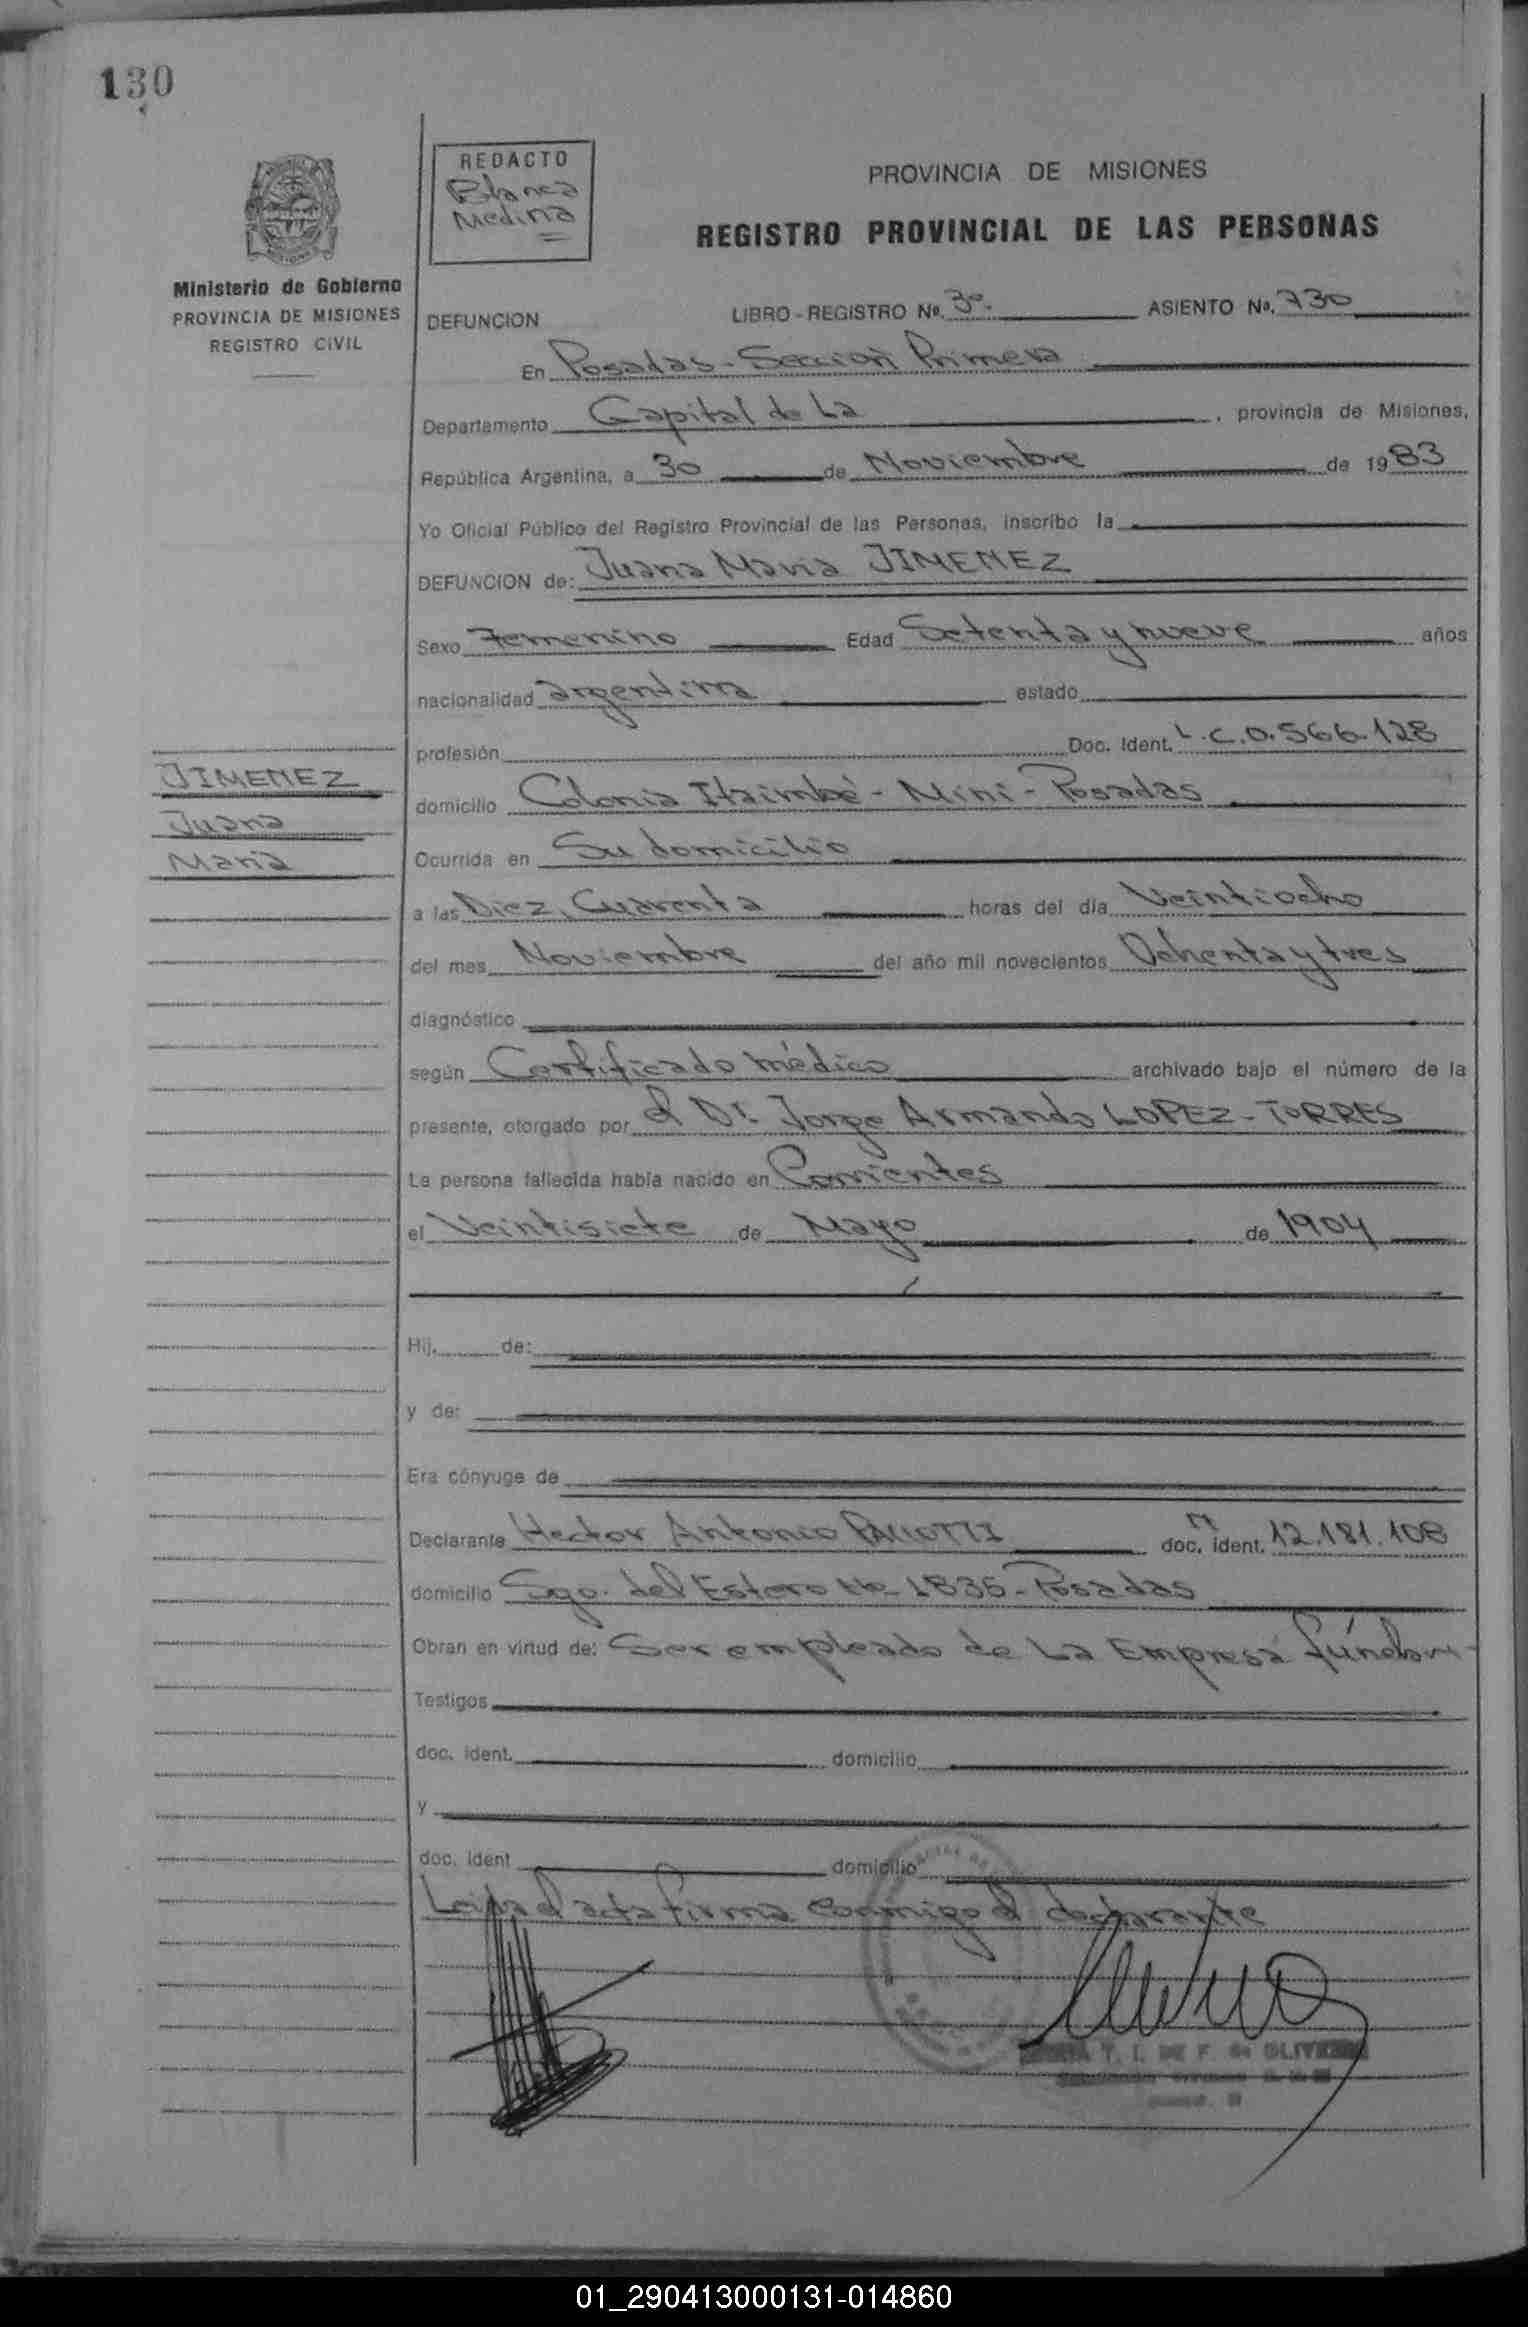 130
REDACTO
Blanca
Medina
Ministerio de Gobierno
PROVINCIA DE MISIONES
REGISTRO CIVIL
PROVINCIA DE MISIONES
REGISTRO PROVINCIAL DE LAS PERSONAS
DEFUNCION LIBRO - REGISTRO No. 3o. ASIENTO No. 730
En Posadas - Sección Primera
Departamento Capital de La, provincia de Misiones,
República Argentina, a 30 de Noviembre de 1983
Yo Oficial Público del Registro Provincial de las Personas, inscribo la
DEFUNCION de: Juana Maria JIMENEZ
Sexo Femenino Edad Setenta y nueve años
nacionalidad argentina estado
profesión Doc. Ident. L.C.0.566.128
domicilio Colonia Itaimbé - Mini - Posadas
Ocurrida en Su domicilio
a las Diez, Cuarenta horas del día Veintiocho
del mes Noviembre del año mil novecientos Ochenta y tres
diagnóstico
según Certificado médico archivado bajo el número de la
presente, otorgado por el Dr. Jorge Armando LOPEZ - TORRES
La persona fallecida había nacido en Corrientes
el Veintisiete de Mayo de 1904
Hij. de:
y de:
Era cónyuge de
Declarante Hector Antonio doc. ident. 12.181.108
domicilio Sgo. del Estero No 1835 - Posadas
Obran en virtud de: Ser empleado de La Empresa
Testigos
doc. ident. domicilio
y
doc. ident domicilio
Leída el acta firma conmigo el declarante
JIMENEZ
Juana
Maria
T. I. DE F. de OLIVEIRA
01_290413000131-014860